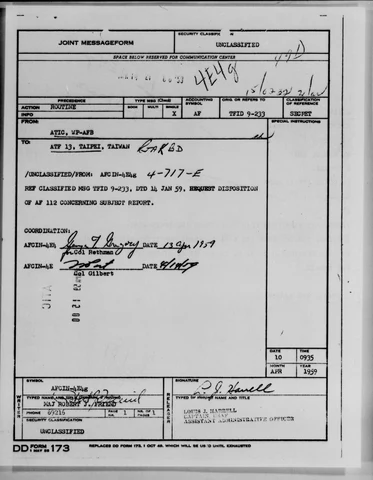 JOINT MESSAGEFORM
SECURITY CLASSIFICATION
UNCLASSIFIED
SPACE BELOW RESERVED FOR COMMUNICATION CENTER
4E4g
PRECEDENCE
TYPE MSG (Check)
ACCOUNTING SYMBOL
ORIG. OR REFERS TO
CLASSIFICATION OF REFERENCE
ACTION ROUTINE
BOOK MULTI SINGLE
INFO
X AF TFID 9-233 SECRET
FROM:
SPECIAL INSTRUCTIONS
ATIC, WP-AFB
TO:
ATF 13, TAIPEI, TAIWAN
/UNCLASSIFIED/FROM: AFCIN-4E4g 4-717-E
REF CLASSIFIED MSG TFID 9-233, DTD 14 JAN 59, REQUEST DISPOSITION
OF AF 112 CONCERNING SUBJECT REPORT.
COORDINATION:
AFCIN-4E4 DATE 13 Apr 1959
Col Rethman
AFCIN-4E DATE
Col Gilbert
DATE TIME
10 0935
MONTH YEAR
APR 1959
SYMBOL
AFCIN-4E4g
SIGNATURE
TYPED NAME AND TITLE
MAJ ROBERT J. FRIEND
PHONE 69216 PAGE 1 NR. OF 1
SECURITY CLASSIFICATION
UNCLASSIFIED
RELEASER
TYPED NAME AND TITLE
CAPTAIN USAF
ASSISTANT ADMINISTRATIVE OFFICER
DD FORM 173
REPLACES DD FORM 173, 1 OCT 49, WHICH WILL BE USED UNTIL EXHAUSTED